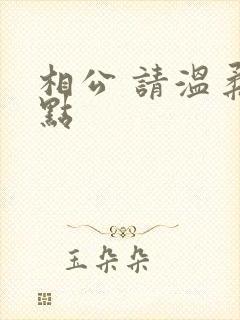 相公 請溫柔
點
玉朵朵